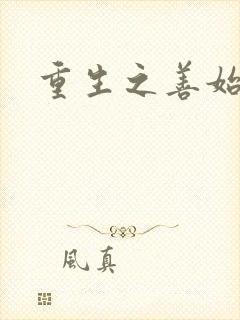 重生之善始
風真